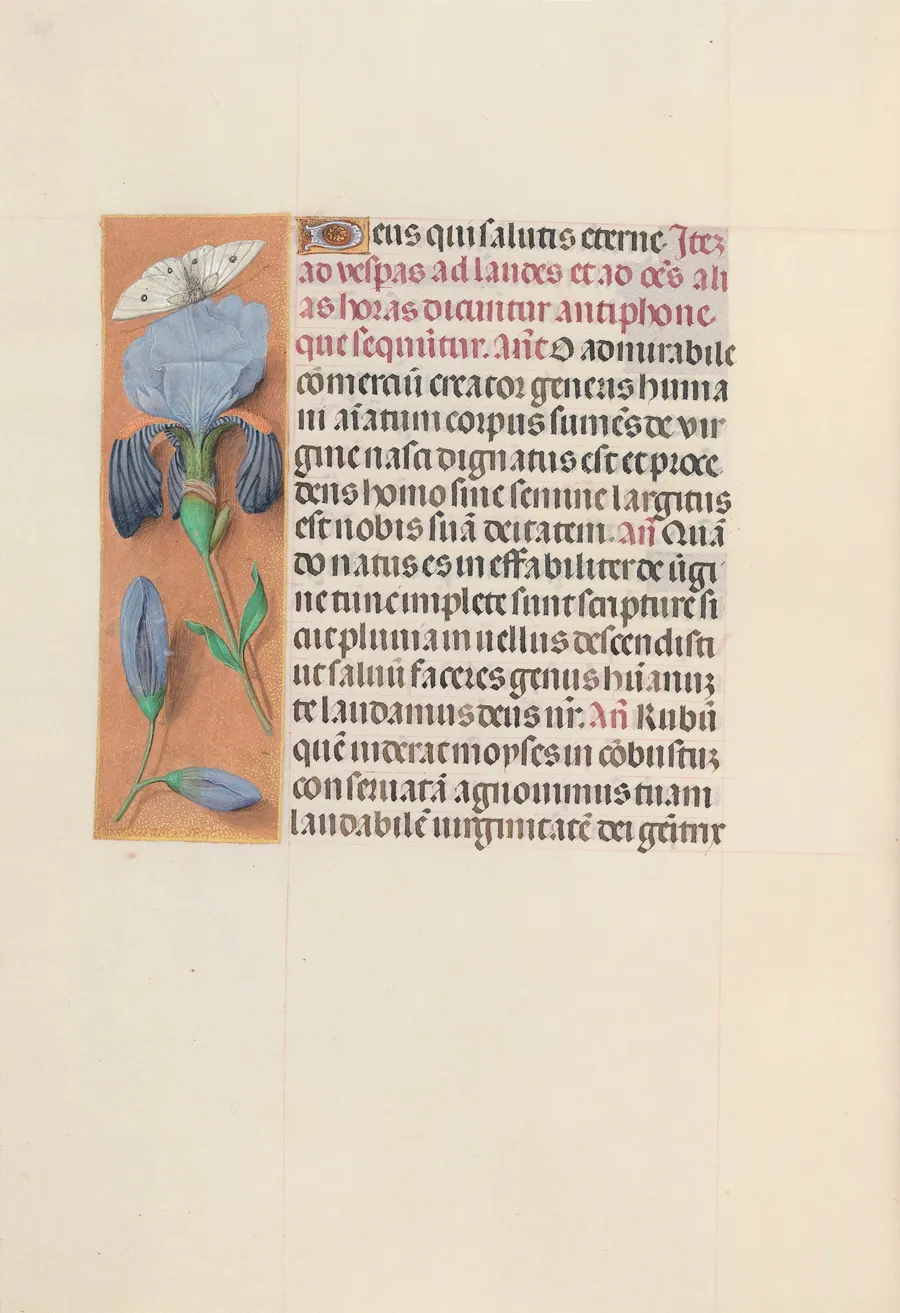 Deus qui salutis eterne. Itez
ad vespas ad laudes et ad oe̅s ali
as horas dicuntur antiphone
que sequũtur. Añt O admirabile
cõmerciũ creator generis huma
ni aĩatum corpus sumẽs de vir
gine nasci dignatus est et proce
dens homo sine semine largitus
est nobis suã deitatem. Añ Quã
do natus es ineffabiliter de ũgi
ne tunc implete sunt scripture si
cut pluuia in uellus descendisti
ut saluũ faceres genus hũanuz
te laudamus deus nr̃. Añ Rubũ
quẽ uiderat moyses in cõbustuz
conseruatã agnouimus tuam
laudabilẽ uirginitatẽ dei geitrix